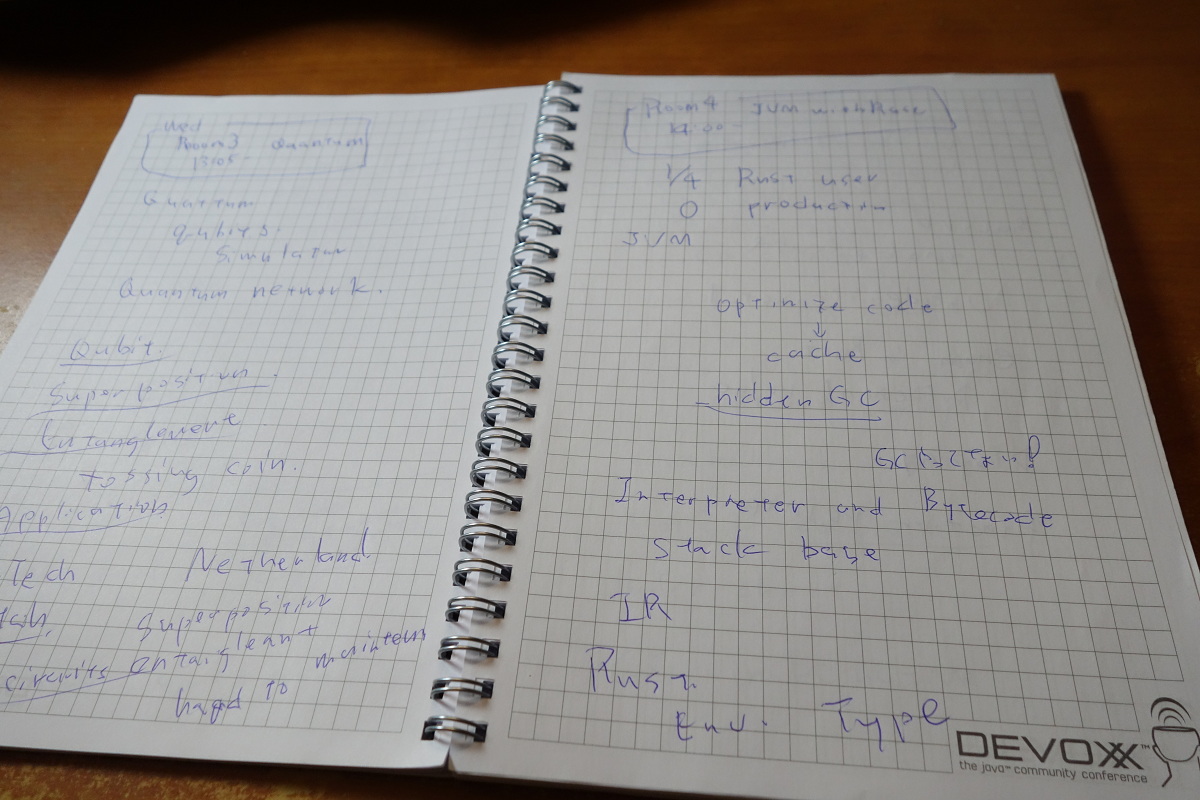 Wed
Room 3 Quantum
13:05 -
Quantum
qubits.
simulator
Quantum network.
Qubit.
Superposition.
Entanglement
tossing coin.
Application
Tech Netherland
superposition
circuits entanglement maintain
hard to
Room 4 JVM with Rust
14:00 -
1/4 Rust user
0 production
JVM
optimize code
↓
cache
hidden GC
GC
Interpreter and Bytecode
stack base
IR
Rust.
Env. Type
DEVOXX™
the java™ community conference